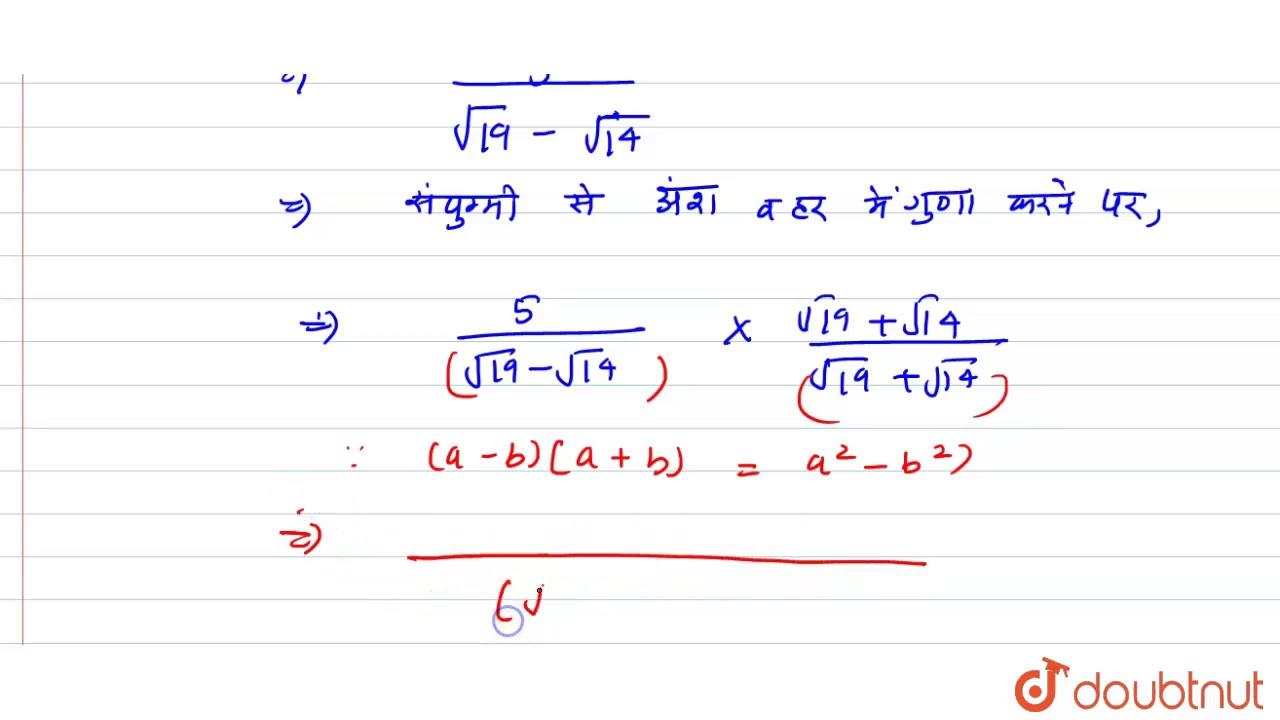 √19 - √14
⇒) संयुग्मी से अंश व हर में गुणा करने पर,
⇒) 5 / (√19 - √14) × √19 + √14 / (√19 + √14)
∵ (a - b)(a + b) = a² - b²)
⇒)
(√
doubtnut